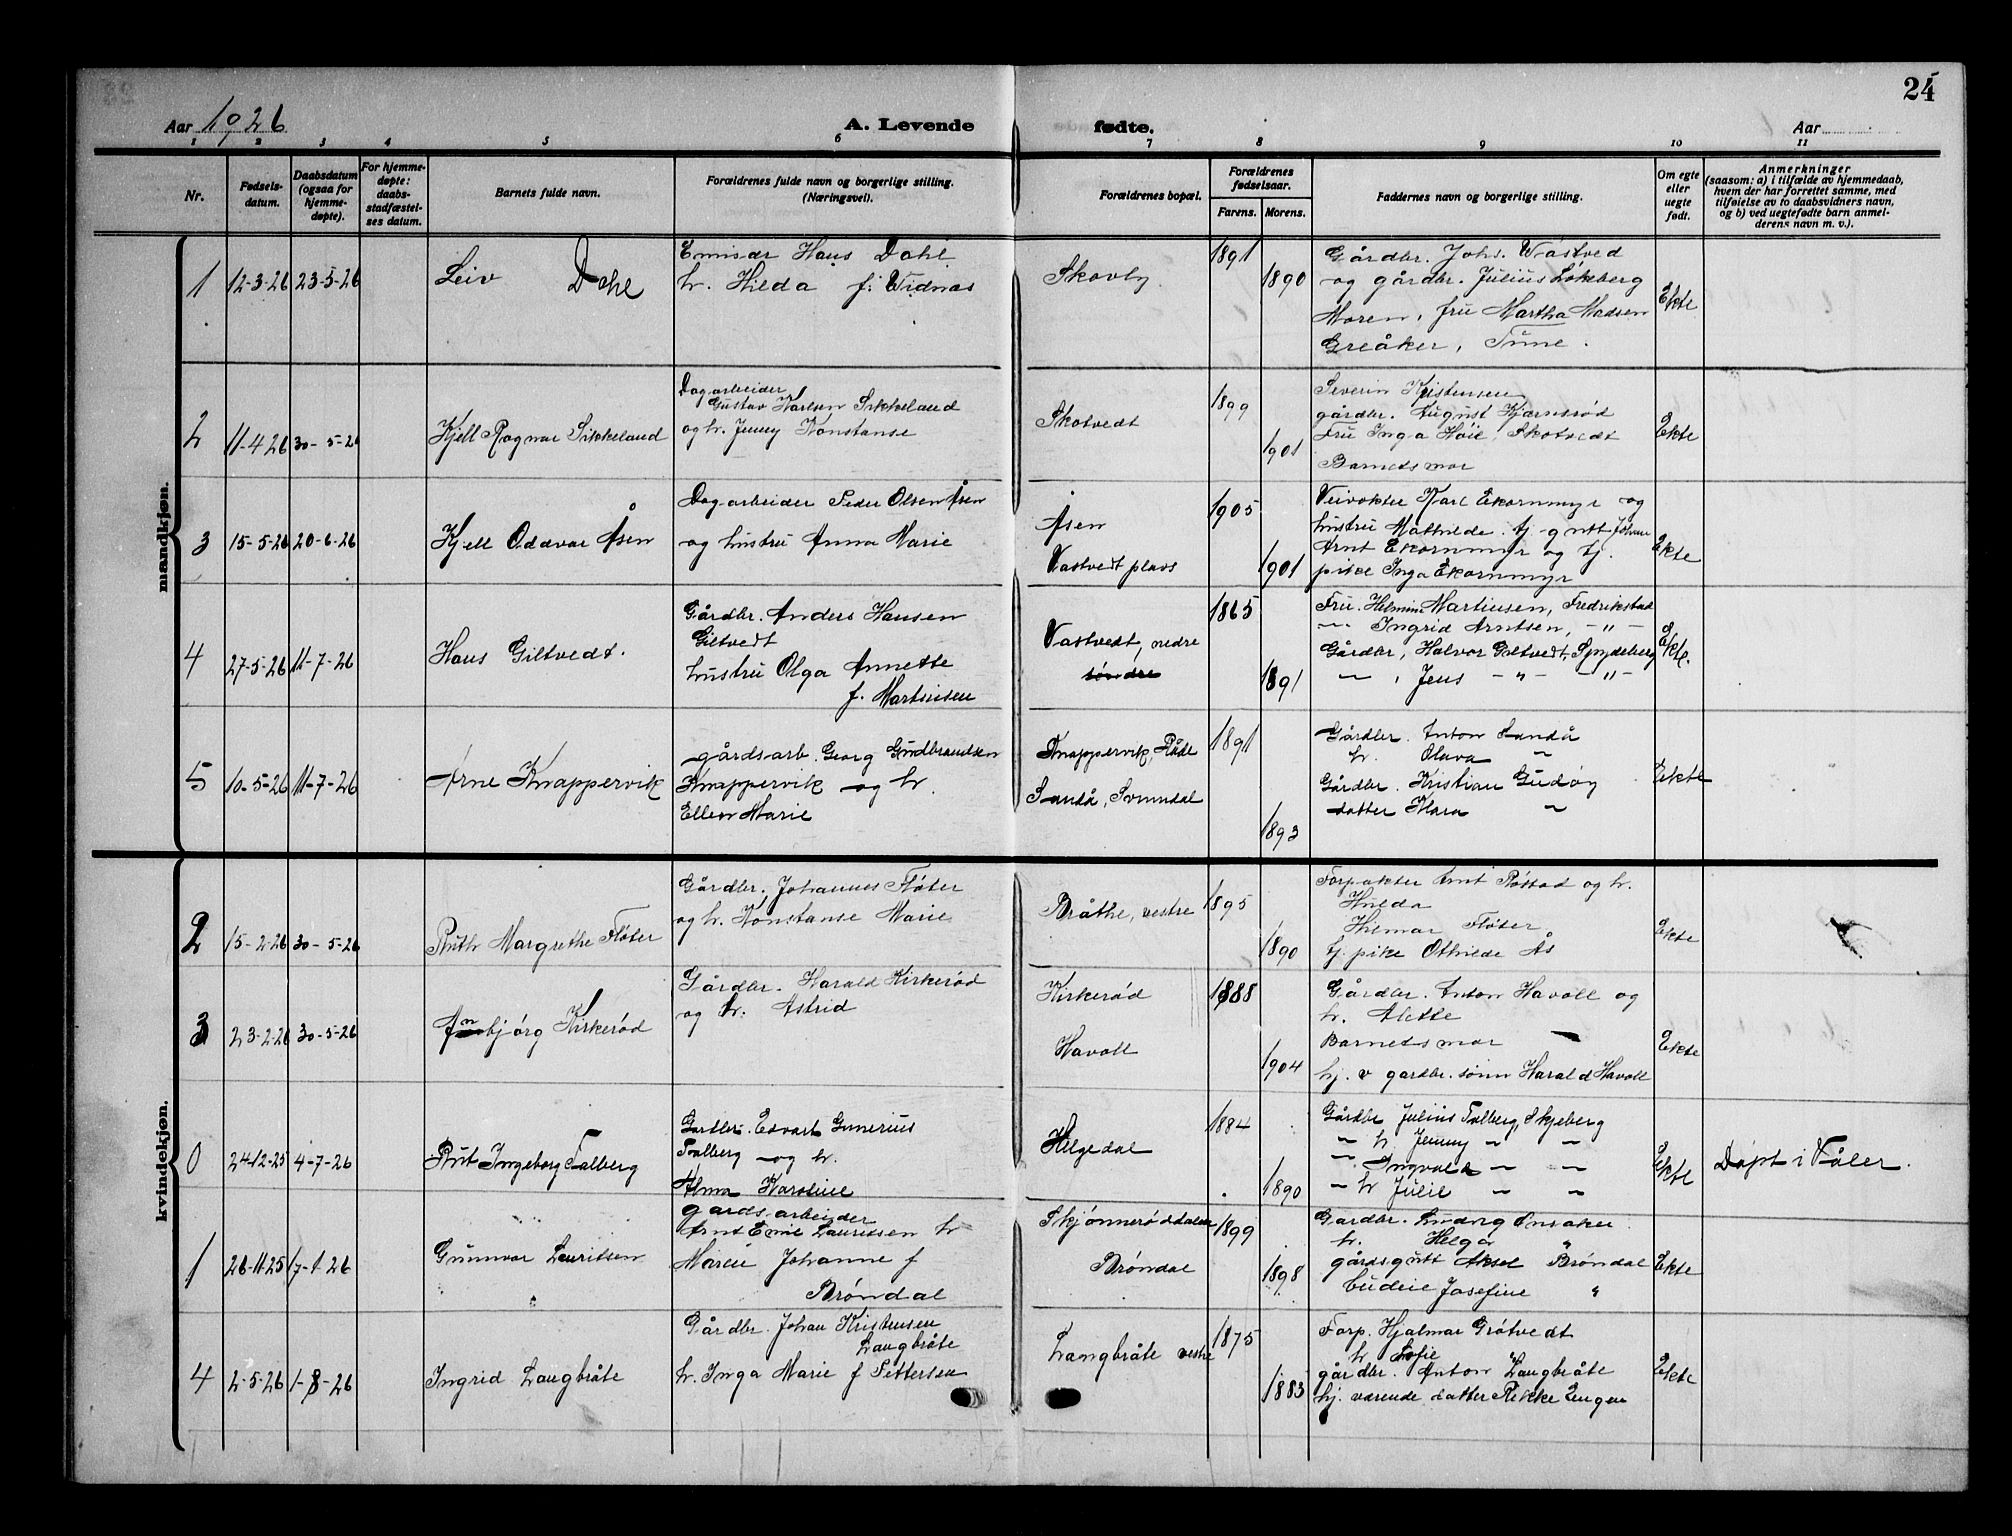 24
Aar 1926
A. Levende
fødte.
Aar
1 2 3 4 5 6 7 8 9 10 11
Nr.
Fødsels-
datum.
Daabsdatum
(ogsaa for
hjemme-
døpte).
For hjemme-
døpte:
daabs-
stadfæstel-
ses datum.
Barnets fulde navn.
Forældrenes fulde navn og borgerlige stilling.
(Næringsvei).
Forældrenes bopæl.
Forældrenes
fødselsaar.
Farens. Morens.
Faddernes navn og borgerlige stilling.
Om egte
eller
uegte
født.
Anmerkninger
(saasom: a) i tilfælde av hjemmedaab,
hvem der har forrettet samme, med
tilføielse av to daabsvidners navn,
og b) ved uegtefødte barn anmel-
derens navn m. v.).
mandkjøn.
1 12-3-26 23-5-26
Leiv Dahl
Emisær Hans Dahl
h. Hilda f. Vidnes
Skovby
1891
1890
Gårdbr. Johs. Våstved
og gårdbr. Julius Løkeberg
Moren, fru Martha Madsen
Greåker, Tune.
Ekte
2 11-4-26 30-5-26
Kjell Ragnar Sikkeland
Dagarbeider
Gustav Karlsen Sikkeland
og h. Jenny Konstanse
Skotvedt
1899
1901
Severin Kristensen
gårdbr. August Kjærnsrød
Fru Inga Høie, Skotvedt
Barnets mor
Ekte
3 15-5-26 20-6-26
Kjell Oddvar Åsen
Dagarbeider Peder Olsen Åsen
og hustru Anna Marie
Åsen
Vastvedt plass
1905
1901
Veivokter Karl Ekornmyr og
hustru Mathilde. tj.-gutt Johan
Arnt Ekornmyr og tj.
pike Inga Ekornmyr
Ekte
4 27-5-26 11-7-26
Hans Giltvedt.
Gårdbr. Anders Hansen
Giltvedt
hustru Olga Annette
f. Martinsen
Vastvedt, nedre
søndre
1865
1891
Fru. Helmine Martinsen, Fredrikstad
-"- Ingrid Arntsen, -"-
Gårdbr, Halvor Giltvedt, Spydeberg
-"- , Jens -"- -"-
Ekte.
5 10-5-26 11-7-26
Arne Knappervik
gårdsarb. Georg Gudbrandsen
Knappervik og h.
Ellen Marie
Knappervik, Råde
Sandå, Svinndal
1891
1893
Gårdbr. Anton Sandå
h. Olava "
Gårdbr. Kristian Gudøy
datter Klara "
Ekte
kvindekjøn.
2 15-2-26 30-5-26
Ruth Margrethe Fløter
Gårdbr. Johannes Fløter
og h. Konstanse Marie
Bråthe, vestre
1895
1890
Forpakter Arnt Røstad og h.
Hulda
Hilmar Fløter
tj. pike Othilde Ås
Ekte
3 23-2-26 30-5-26
Annbjørg Kirkerød
Gårdbr. Harald Kirkerød
og h. Astrid
Kirkerød
Havoll
1888
1904
Gårdbr. Anton Havoll og
h. Alette
Barnets mor
hj. v gardbr. sønn Harald Havoll
Ekte
0 24-12-25 4-7-26
Rut Ingeborg Falberg
Gardbr. Edvart Gunerius
Falberg og h.
Alma Karoline
Helgedal
1884
1890
Gårdbr Julius Falberg, Skjeberg
" h Jenny " "
" Ingvald " "
" h Julie " "
Ekte
Døpt i Våler.
1 26-11-25 17-1-26
Gunnvor Lauritsen
gardsarbeider
Arnt Emil Lauritsen h
Marie Johanne f
Brøndal
Skjønnerøddalen
Brøndal
1899
1898
Gardbr. Ludvig Ansaker
h. Helga "
gårdsgutt Aksel Brøndal
Budeie Josefine "
Ekte
4 2-5-26 1-8-26
Ingrid Langbråte
Gårdbr. Johan Kristensen
Langbråte
h. Inga Marie f Pettersen
Langbråte vestre
1875
1883
Forp. Hjalmar Grøtvedt
h Sofie
gårdbr. Anton Langbråte
hj. værende datter Rikke Engen
Ekte